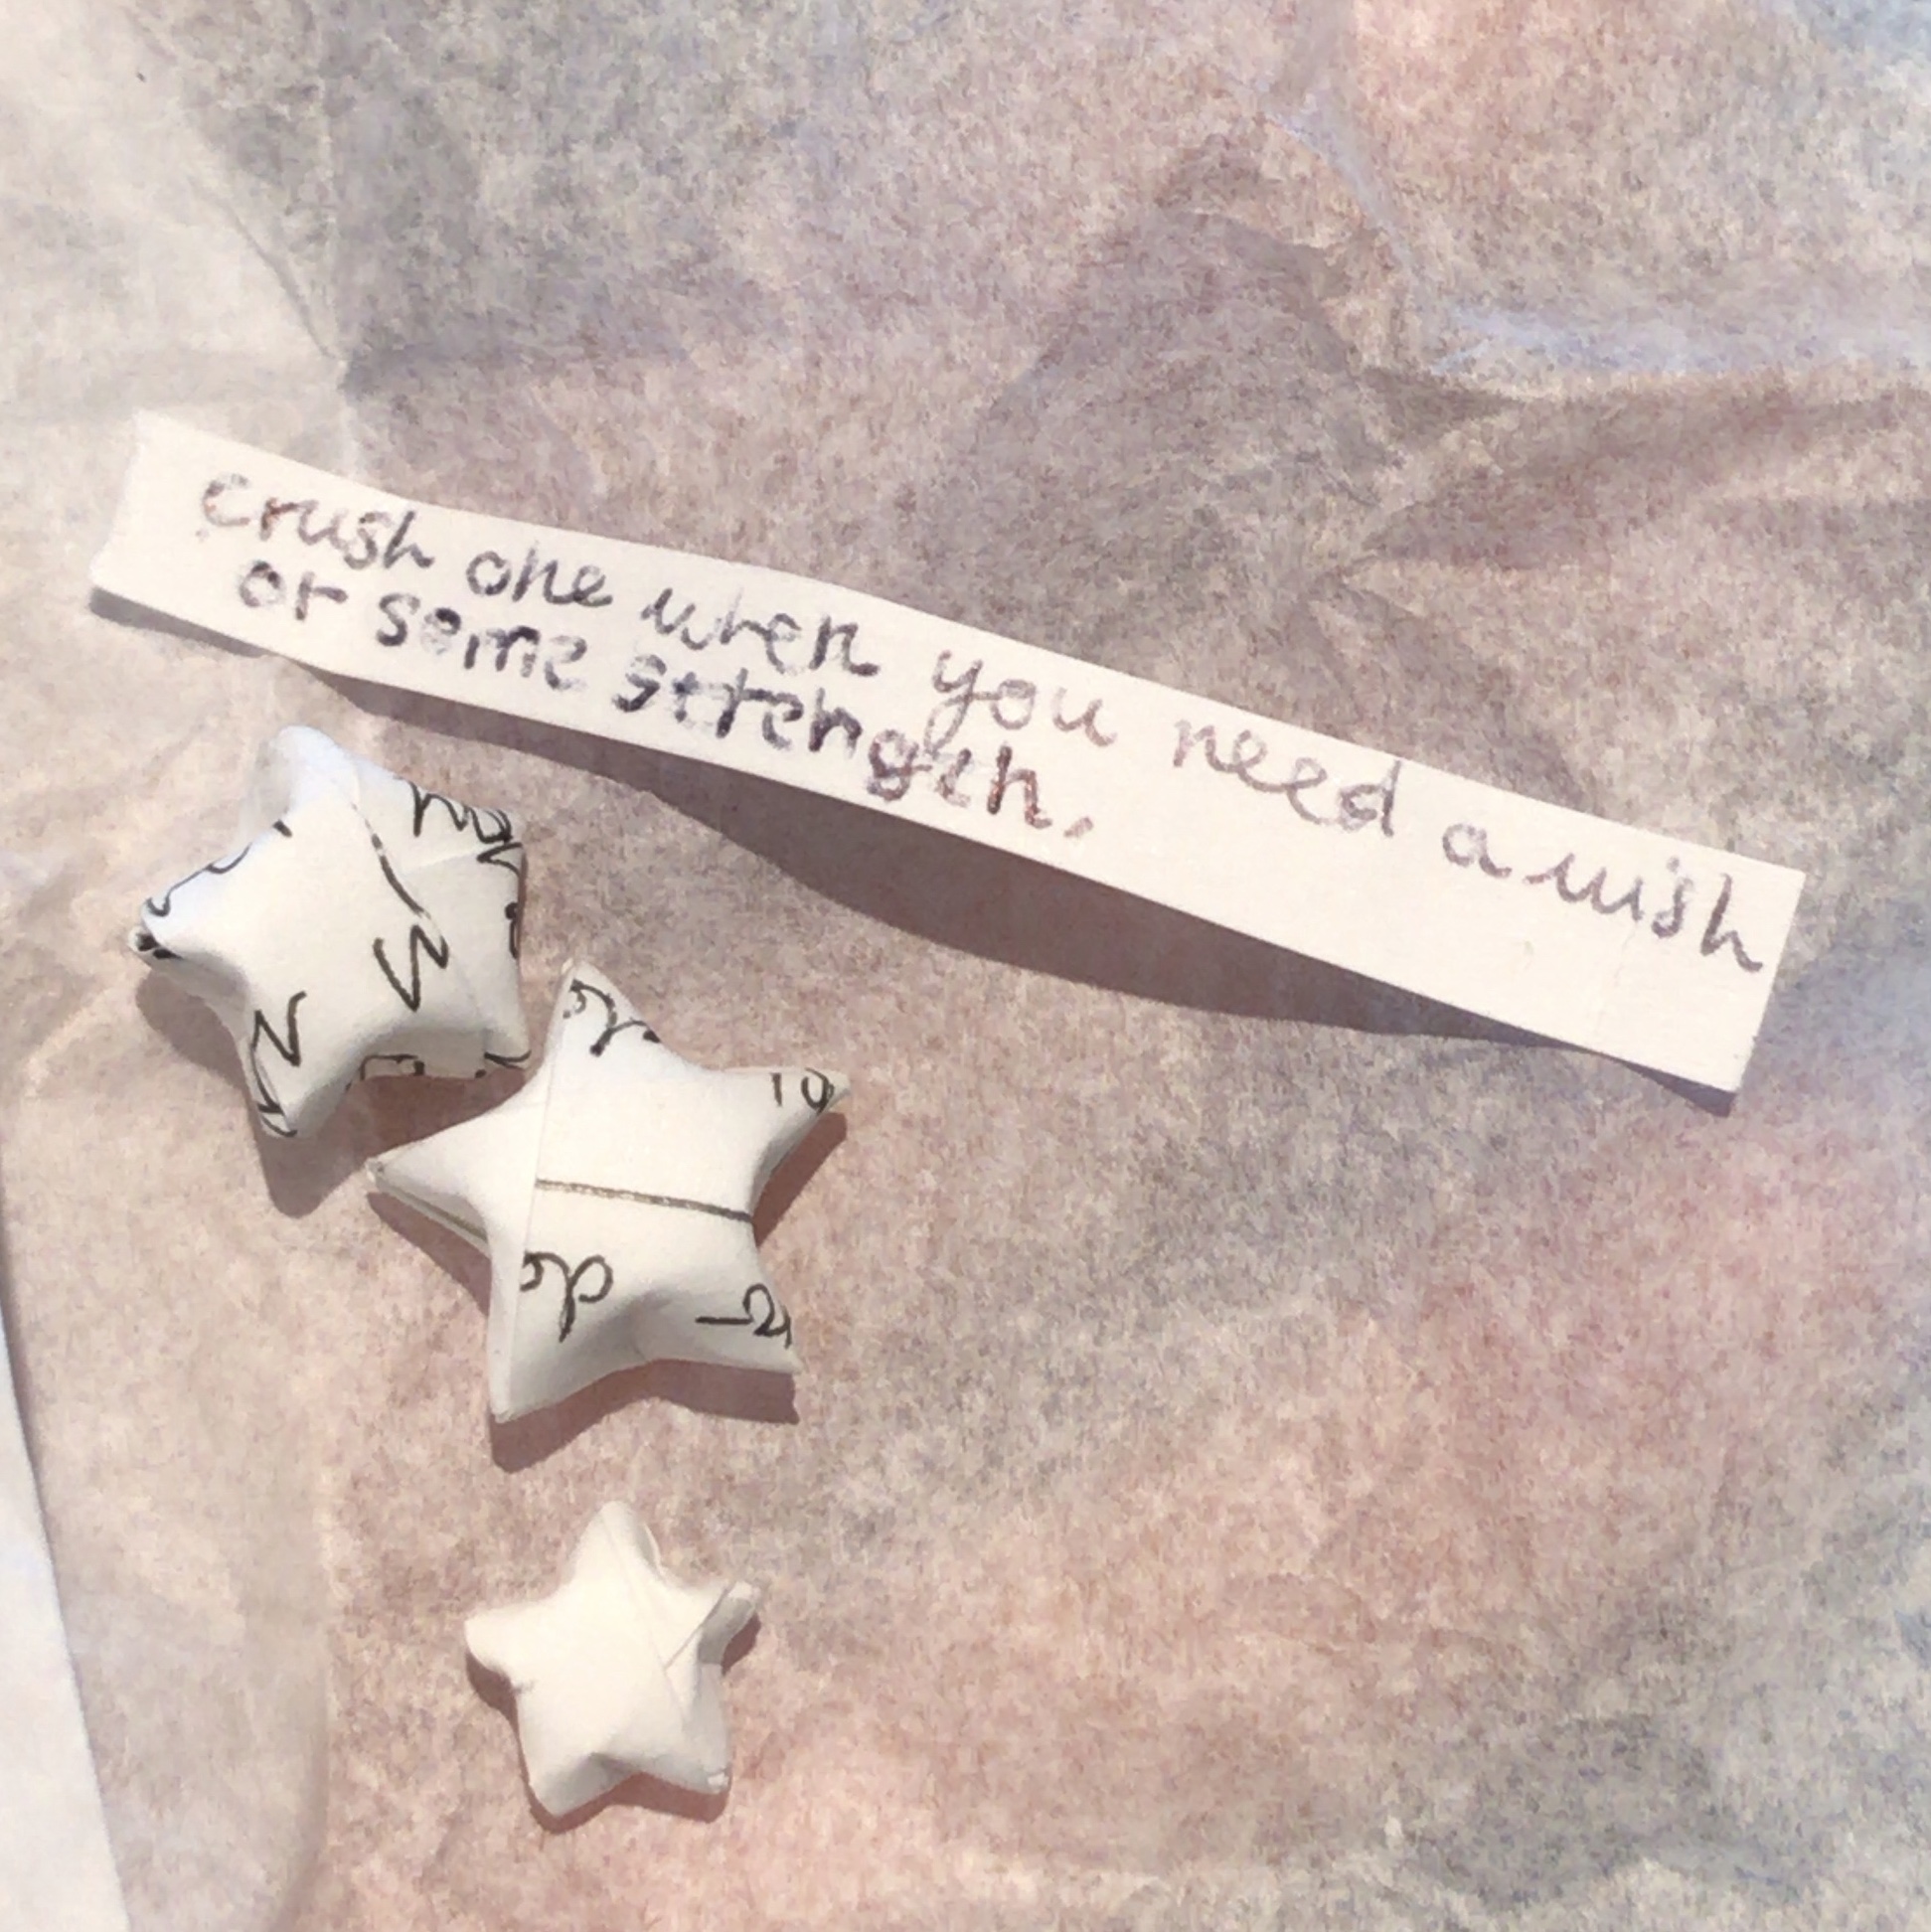 crush one when you need a wish
or some strength.